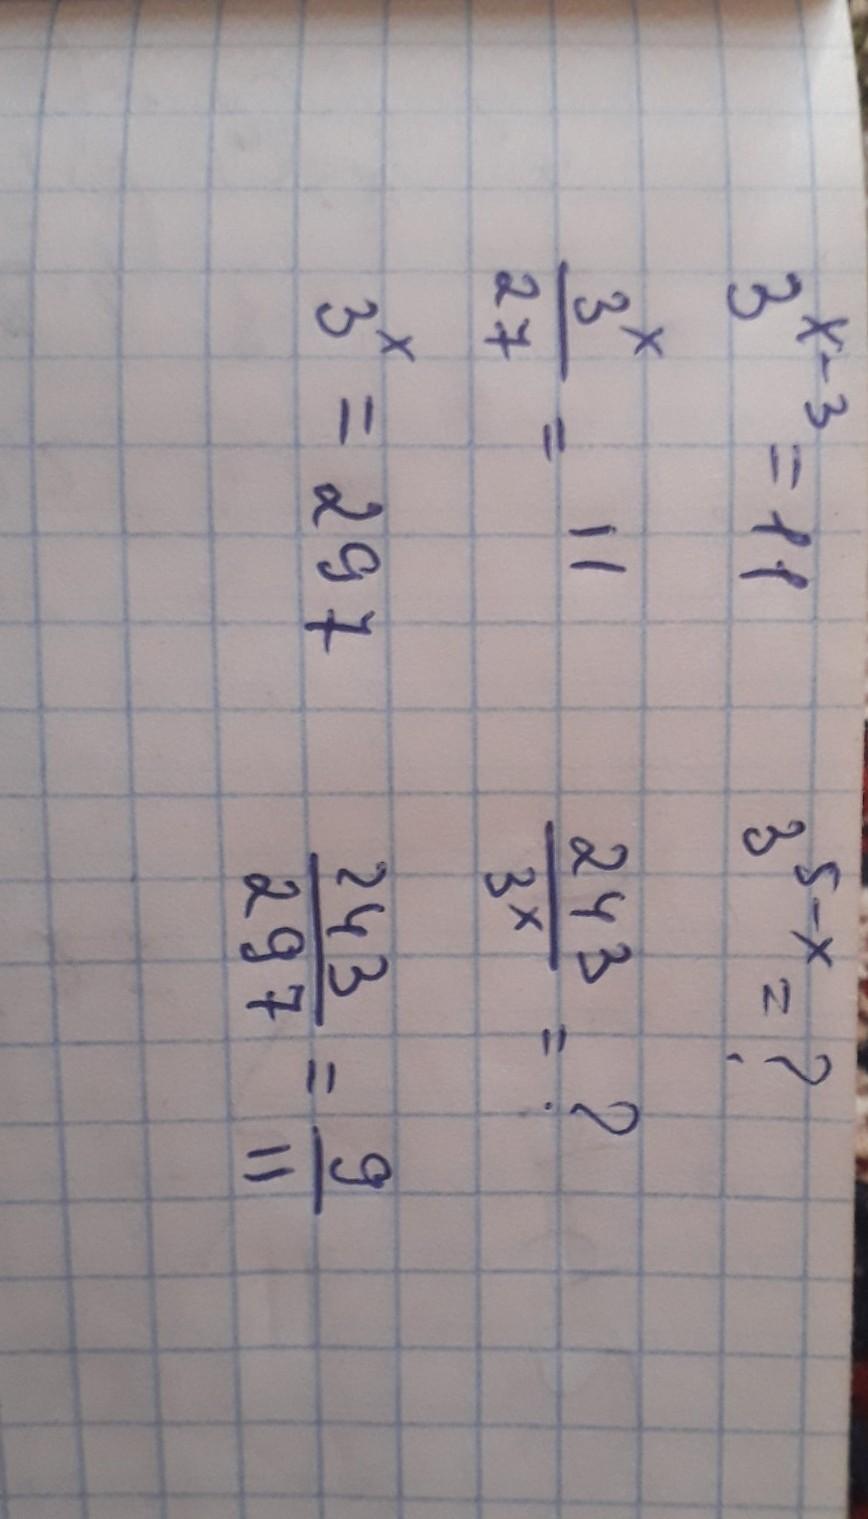 3^{x-3} = 11    3^{5-x} = ?
\frac{3^x}{27} = 11    \frac{243}{3^x} = ?
3^x = 297    \frac{243}{297} = \frac{9}{11}